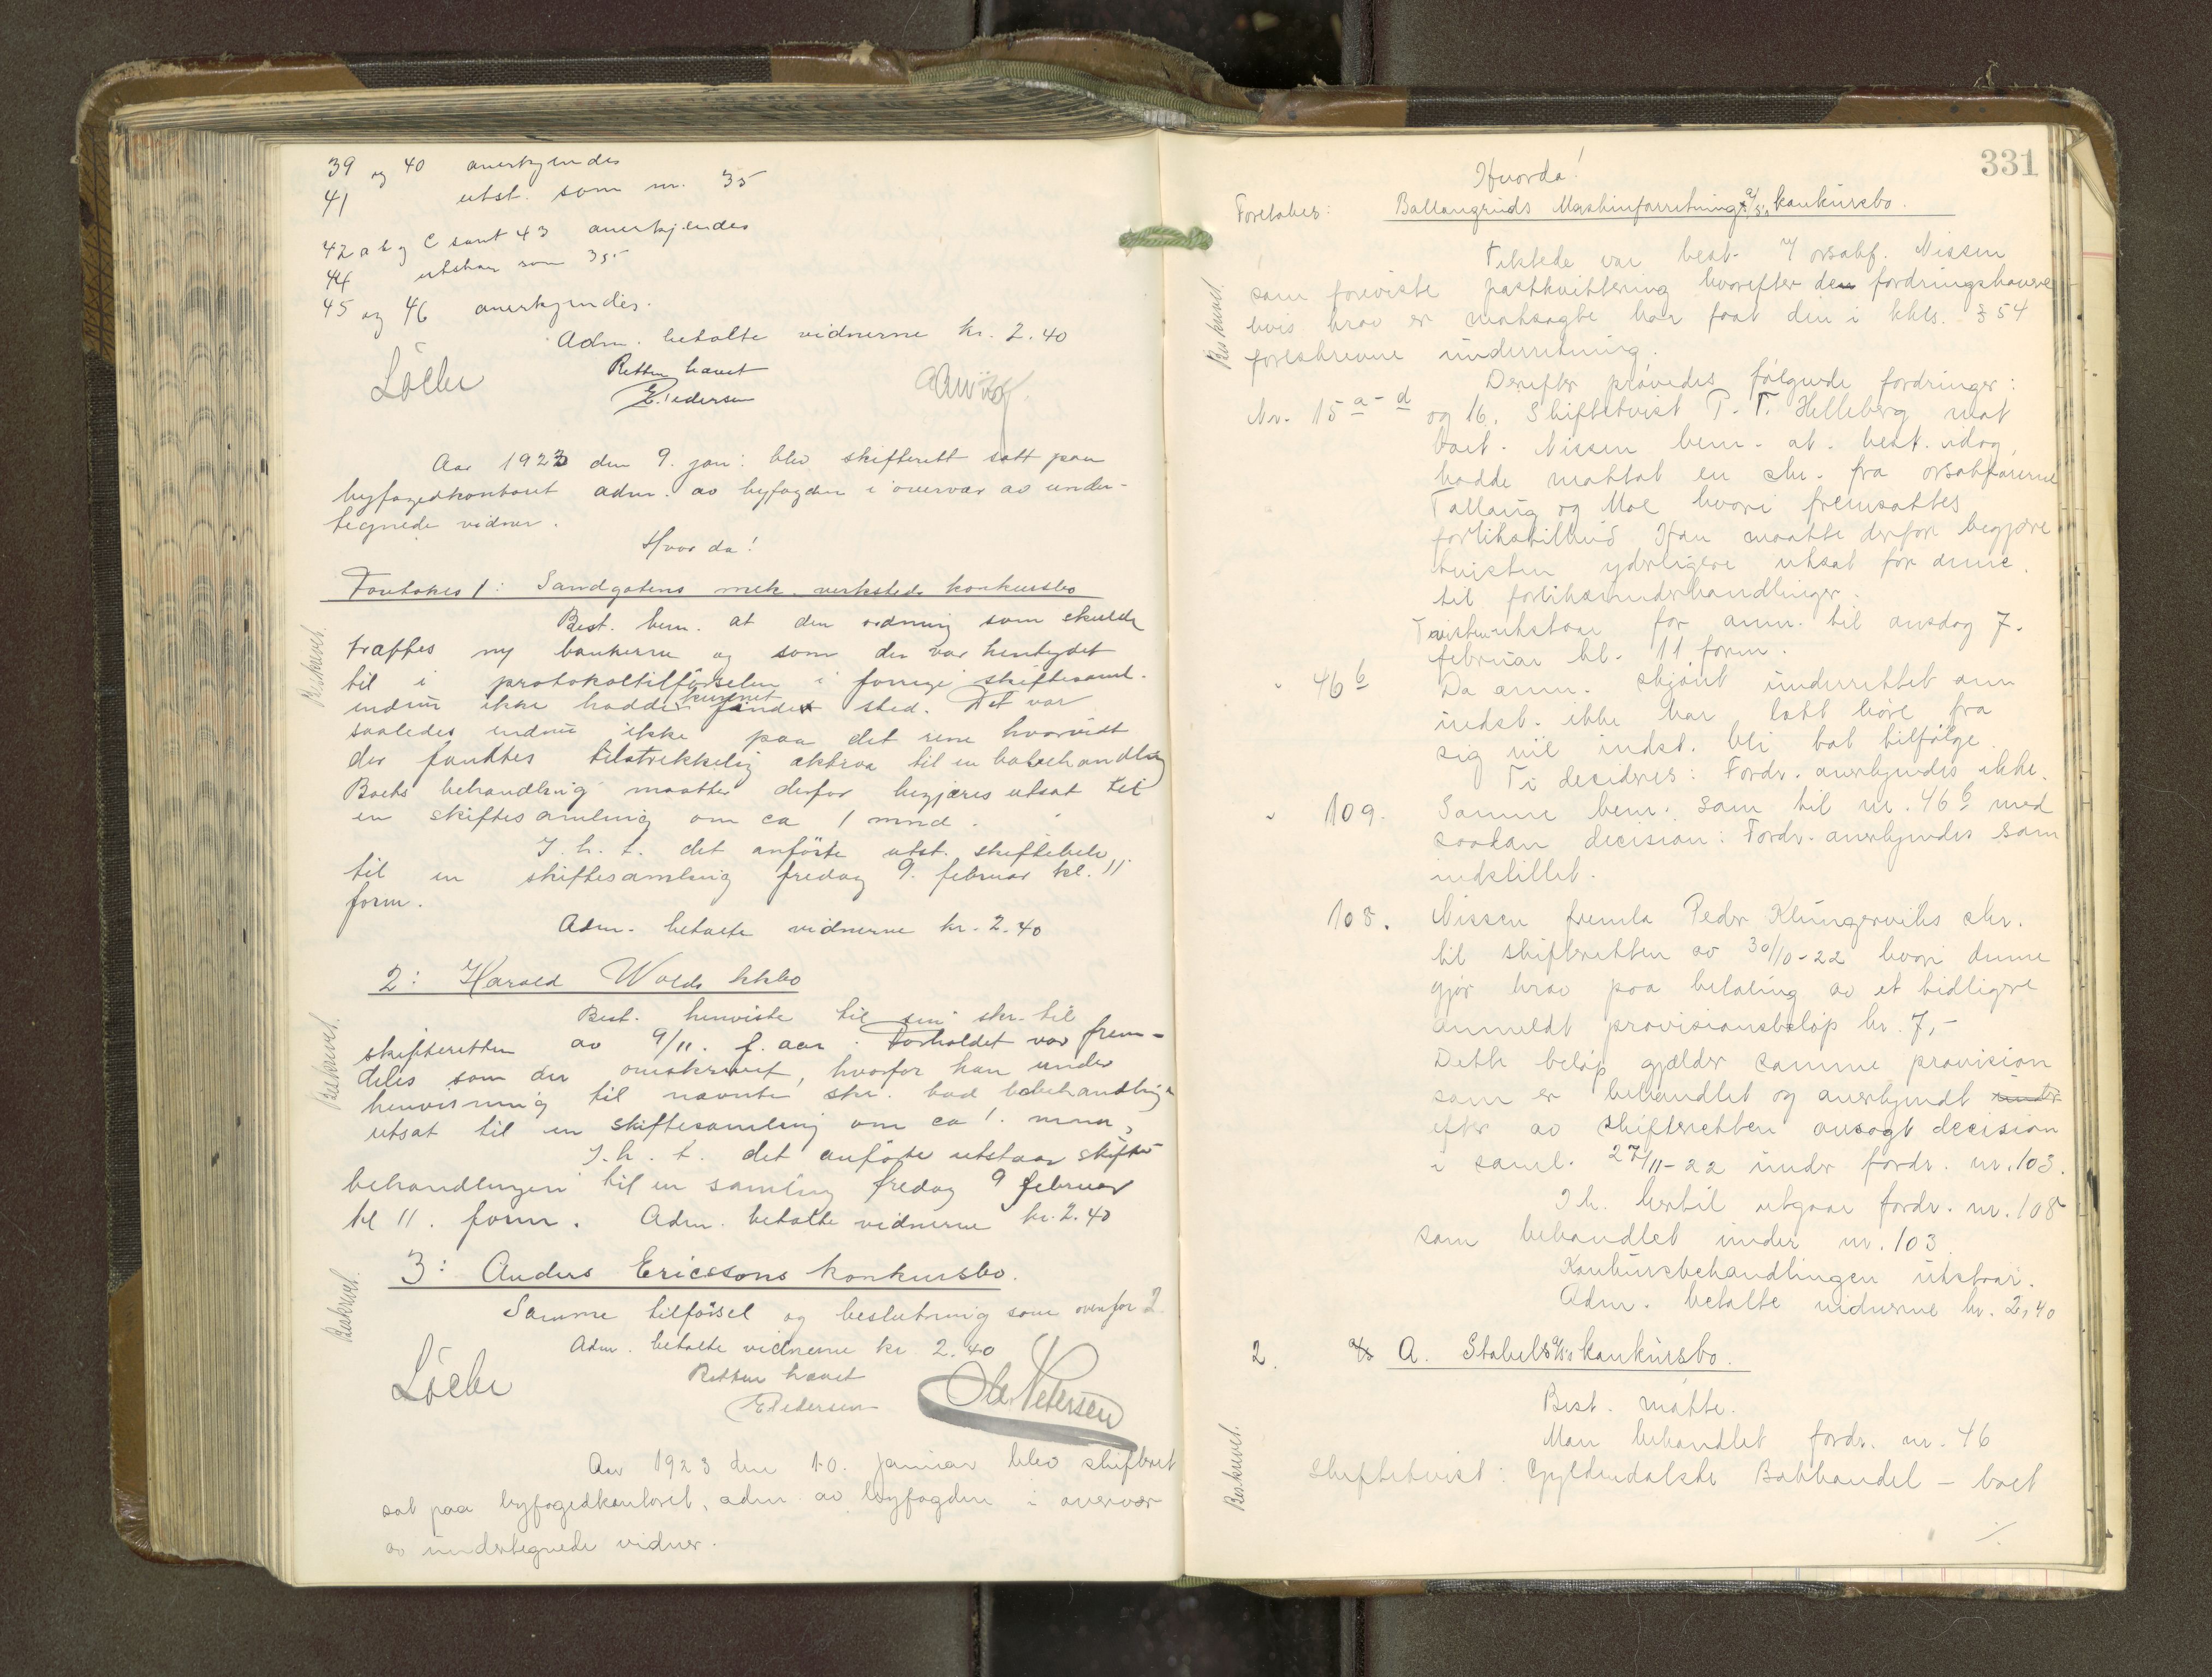 39 og 40 anerkjendes
41 utst. som nr. 35
42 a b og c samt 43 anerkjendes
44 utstaar som 35
45 og 46 anerkjendes.
Adm. betalte vidnerne kr. 2.40
Retten hævet
E. Pedersen
Aar 1923 den 9. jan: blev skifterett satt paa
byfogedkontoret adm. av byfogden i overvær av under-
tegnede vidner.
Hvorda!
Foretokes 1: Sandgatens mek. verksteds konkursbo
Beskrevet.
Best. bem. at den ordning som skulde
træffes ny bankerne og som der var hentydet
til i protokoltilførselen i forrige skiftesaml.
endnu ikke hadde kunnet finde sted. Det var
saaledes endnu ikke paa det rene hvorvidt
der fandtes tilstrekkelig aktiva til en bobehandling
Boets behandling maatte derfor begjæres utsat til
en skiftesamling om ca 1 mnd.
I. h. t. det anførte utst. skiftebeh.
til en skiftesamling fredag 9. februar kl. 11
form.
Adm. betalte vidnerne kr. 2.40
2: Harald Wolds kkbo
Beskrevet.
Best. henviste til sin skr. til
skifteretten av 9/11. f. aar. Forholdet var frem-
deles som der omskrevet, hvorfor han under
henvisning til nævnte skr. bad bobehandlingen
utsat til en skiftesamling om ca 1. mnd,
I. h. t. det anførte utstaar skifte
behandlingen til en samling fredag 9 februar
kl 11. form. Adm. betalte vidnerne kr. 2.40
3: Anders Ericssons konkursbo.
Beskrevet.
Samme tilførsel og beslutning som ovenfor 2
Adm. betalte vidnerne kr 2.40
Retten hævet
E Pedersen
Ole Petersen
Aar 1923 den 10. januar blev skifteret
sat paa byfogedkontoret, adm av byfogden i overvær
av undertegnede vidner.
331
Hvorda!
Foretokes: Ballangruds Maskinforretning a/s's konkursbo.
Beskrevet.
Tilstede var best. Orsakf. Nissen
som foreviste postkvittering hvorefter den fordringshavere
hvis krav er motsagt har faat den i kkls. § 54
foreskrevne underretning.
Derefter prøvedes følgende fordringer:
Nr. 15 a - d og 16. Skiftetvist P. T. Helleberg mot
boet. Nissen bem. at best. idag
hadde mottat en skr. fra orsakførerne
Tallaug og Moe hvori fremsattes
forlikstilbud. Han maatte derfor begjære
tvisten yderligere utsat for denne
til forliksunderhandlinger.
Tvisten utstaar for anm. til onsdag 7.
februar kl. 11 form.
" 46 b Da anm. skjønt underrettet om
indst. ikke har latt høre fra
sig vil indst. bli tat tilfølge.
Ti decideres: Fordr. anerkjendes ikke.
" 109. Samme bem. som til nr. 46 b med
saadan decision: Fordr. anerkjendes som
indstillet.
108. Nissen fremla Peder Klungerviks skr.
til skifteretten av 30/10-22 hvori denne
gjør krav paa betaling av et tidligere
anmeldt provisionsbeløp kr. 7,-
Dette beløp gjælder samme provision
som er behandlet og anerkjendt under
efter av skifteretten avsagt decision
i saml. 27/11-22 under fordr. nr. 103.
I h. hertil utgaar fordr. nr. 108
som behandlet under nr. 103.
Konkursbehandlingen utstaar.
Adm. betalte vidnerne kr. 2,40
2. a/s A. Stabels a/s's konkursbo.
Beskrevet.
Best. møtte.
Man behandlet fordr. nr. 46
Skiftetvist: Gyldendalske Bokhandel - boet
./.